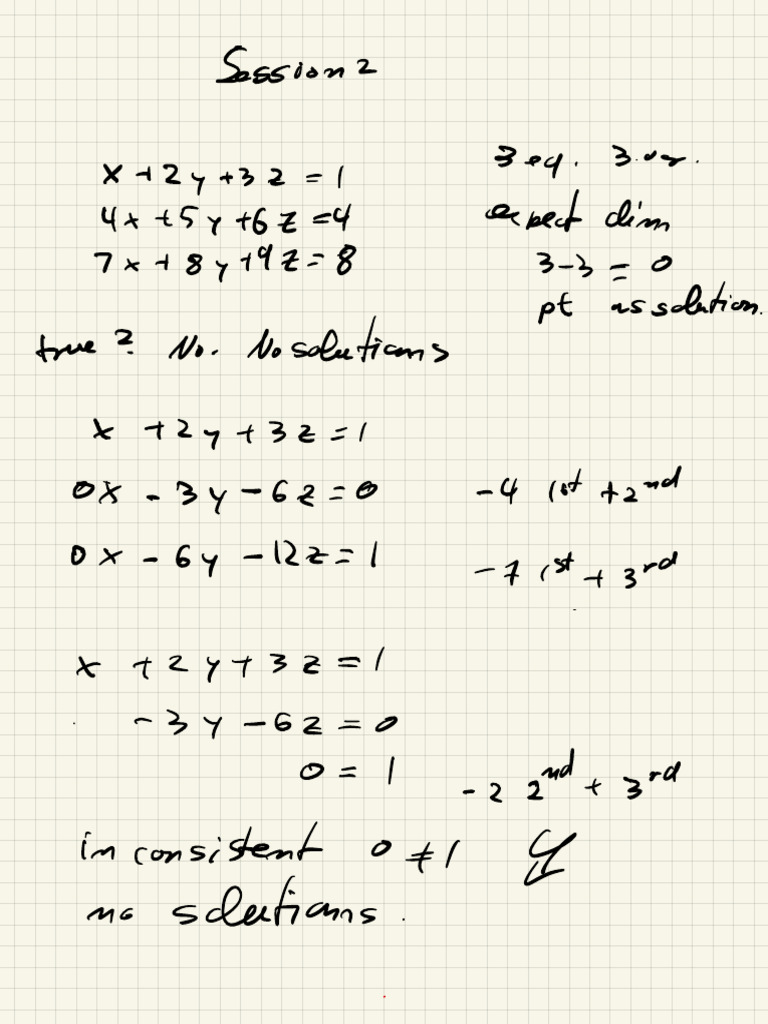 Session 2
x + 2y + 3z = 1
4x + 5y + 6z = 4
7x + 8y + 9z = 8
3 eq. 3 var.
expect dim
3 - 3 = 0
pt as solution.
true? No. No solutions
x + 2y + 3z = 1
0x - 3y - 6z = 0
-4 1st + 2nd
0x - 6y - 12z = 1
-7 1st + 3rd
x + 2y + 3z = 1
- 3y - 6z = 0
0 = 1
-2 2nd + 3rd
inconsistent 0 ≠ 1
no solutions.